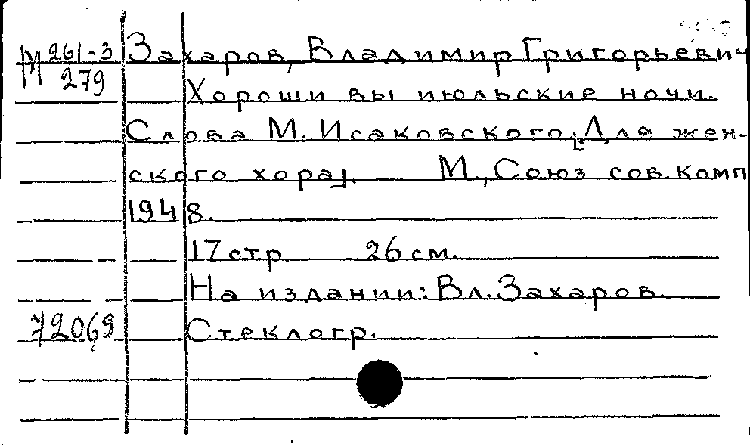 М 261-3 Захаров, Владимир Григорьевич
279 Хороши вы июльские ночи.
Слова М. Исаковского. [Для жен-
ского хора]. М., Союз сов. комп
1948.
17 стр 26 см.
На издании: Вл. Захаров.
72069 Стеклогр.